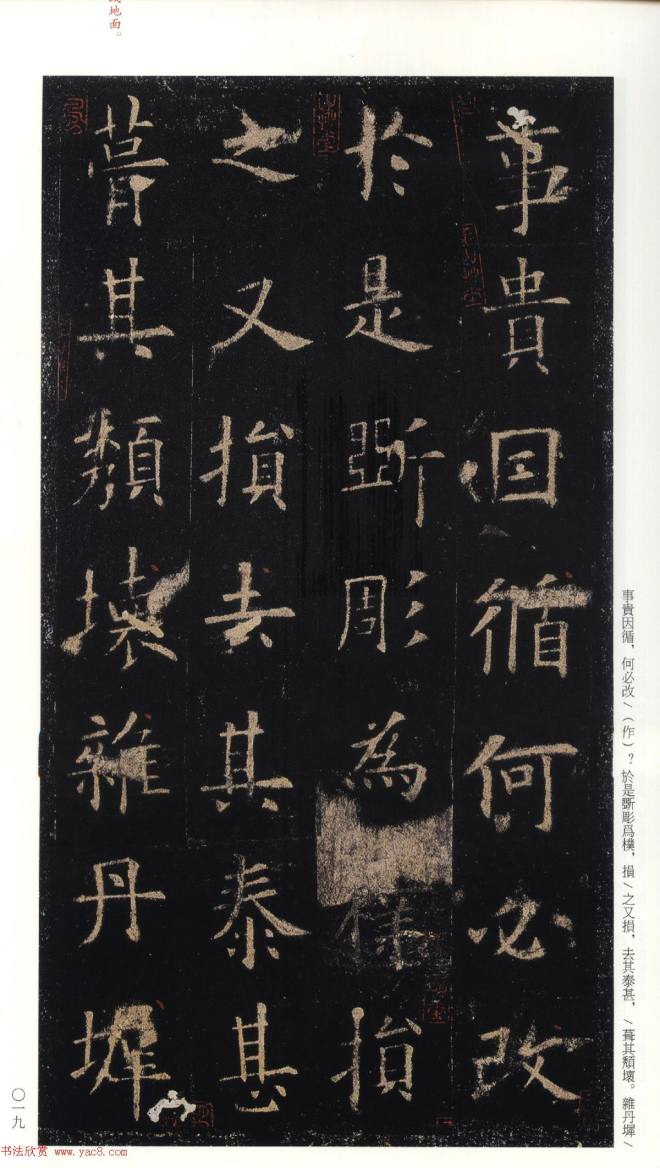 事貴因循何必改
於是斲彫為樸損
之又損去其泰甚
葺其頹壞雜丹墀
事貴因循，何必改／（作）？於是斲彫爲樸，損／之又損，去其泰甚，／葺其頹壞。雜丹墀／
〇一九
地面。
书法欣赏 www.yac8.com